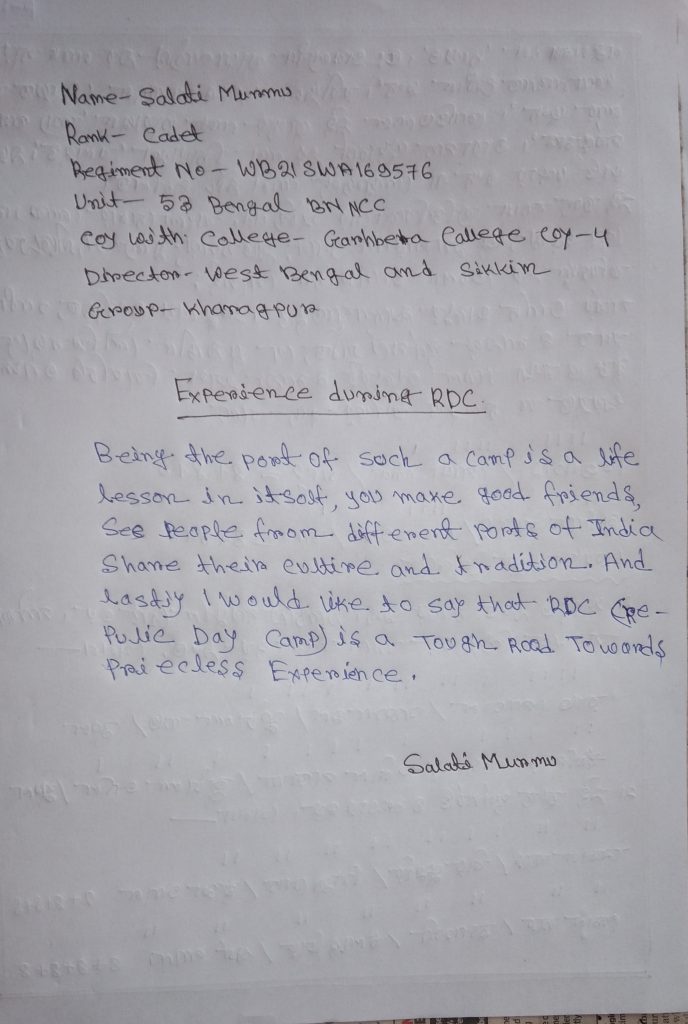 Name- Salati Murmu
Rank- Cadet
Regiment No - WB21SWA169576
Unit- 53 Bengal BN NCC
Coy with College- Garhbeta College Coy-4
Director- West Bengal and Sikkim
Group- Kharagpur
Experience during RDC.
Being the part of such a camp is a life
lesson in itself, you make good friends,
See people from different parts of India
Share their cultire and tradition. And
lastly I would like to say that RDC (Re-
Pulic Day Camp) is a Tough Road Towards
Priecless Experience.
Salati Murmu